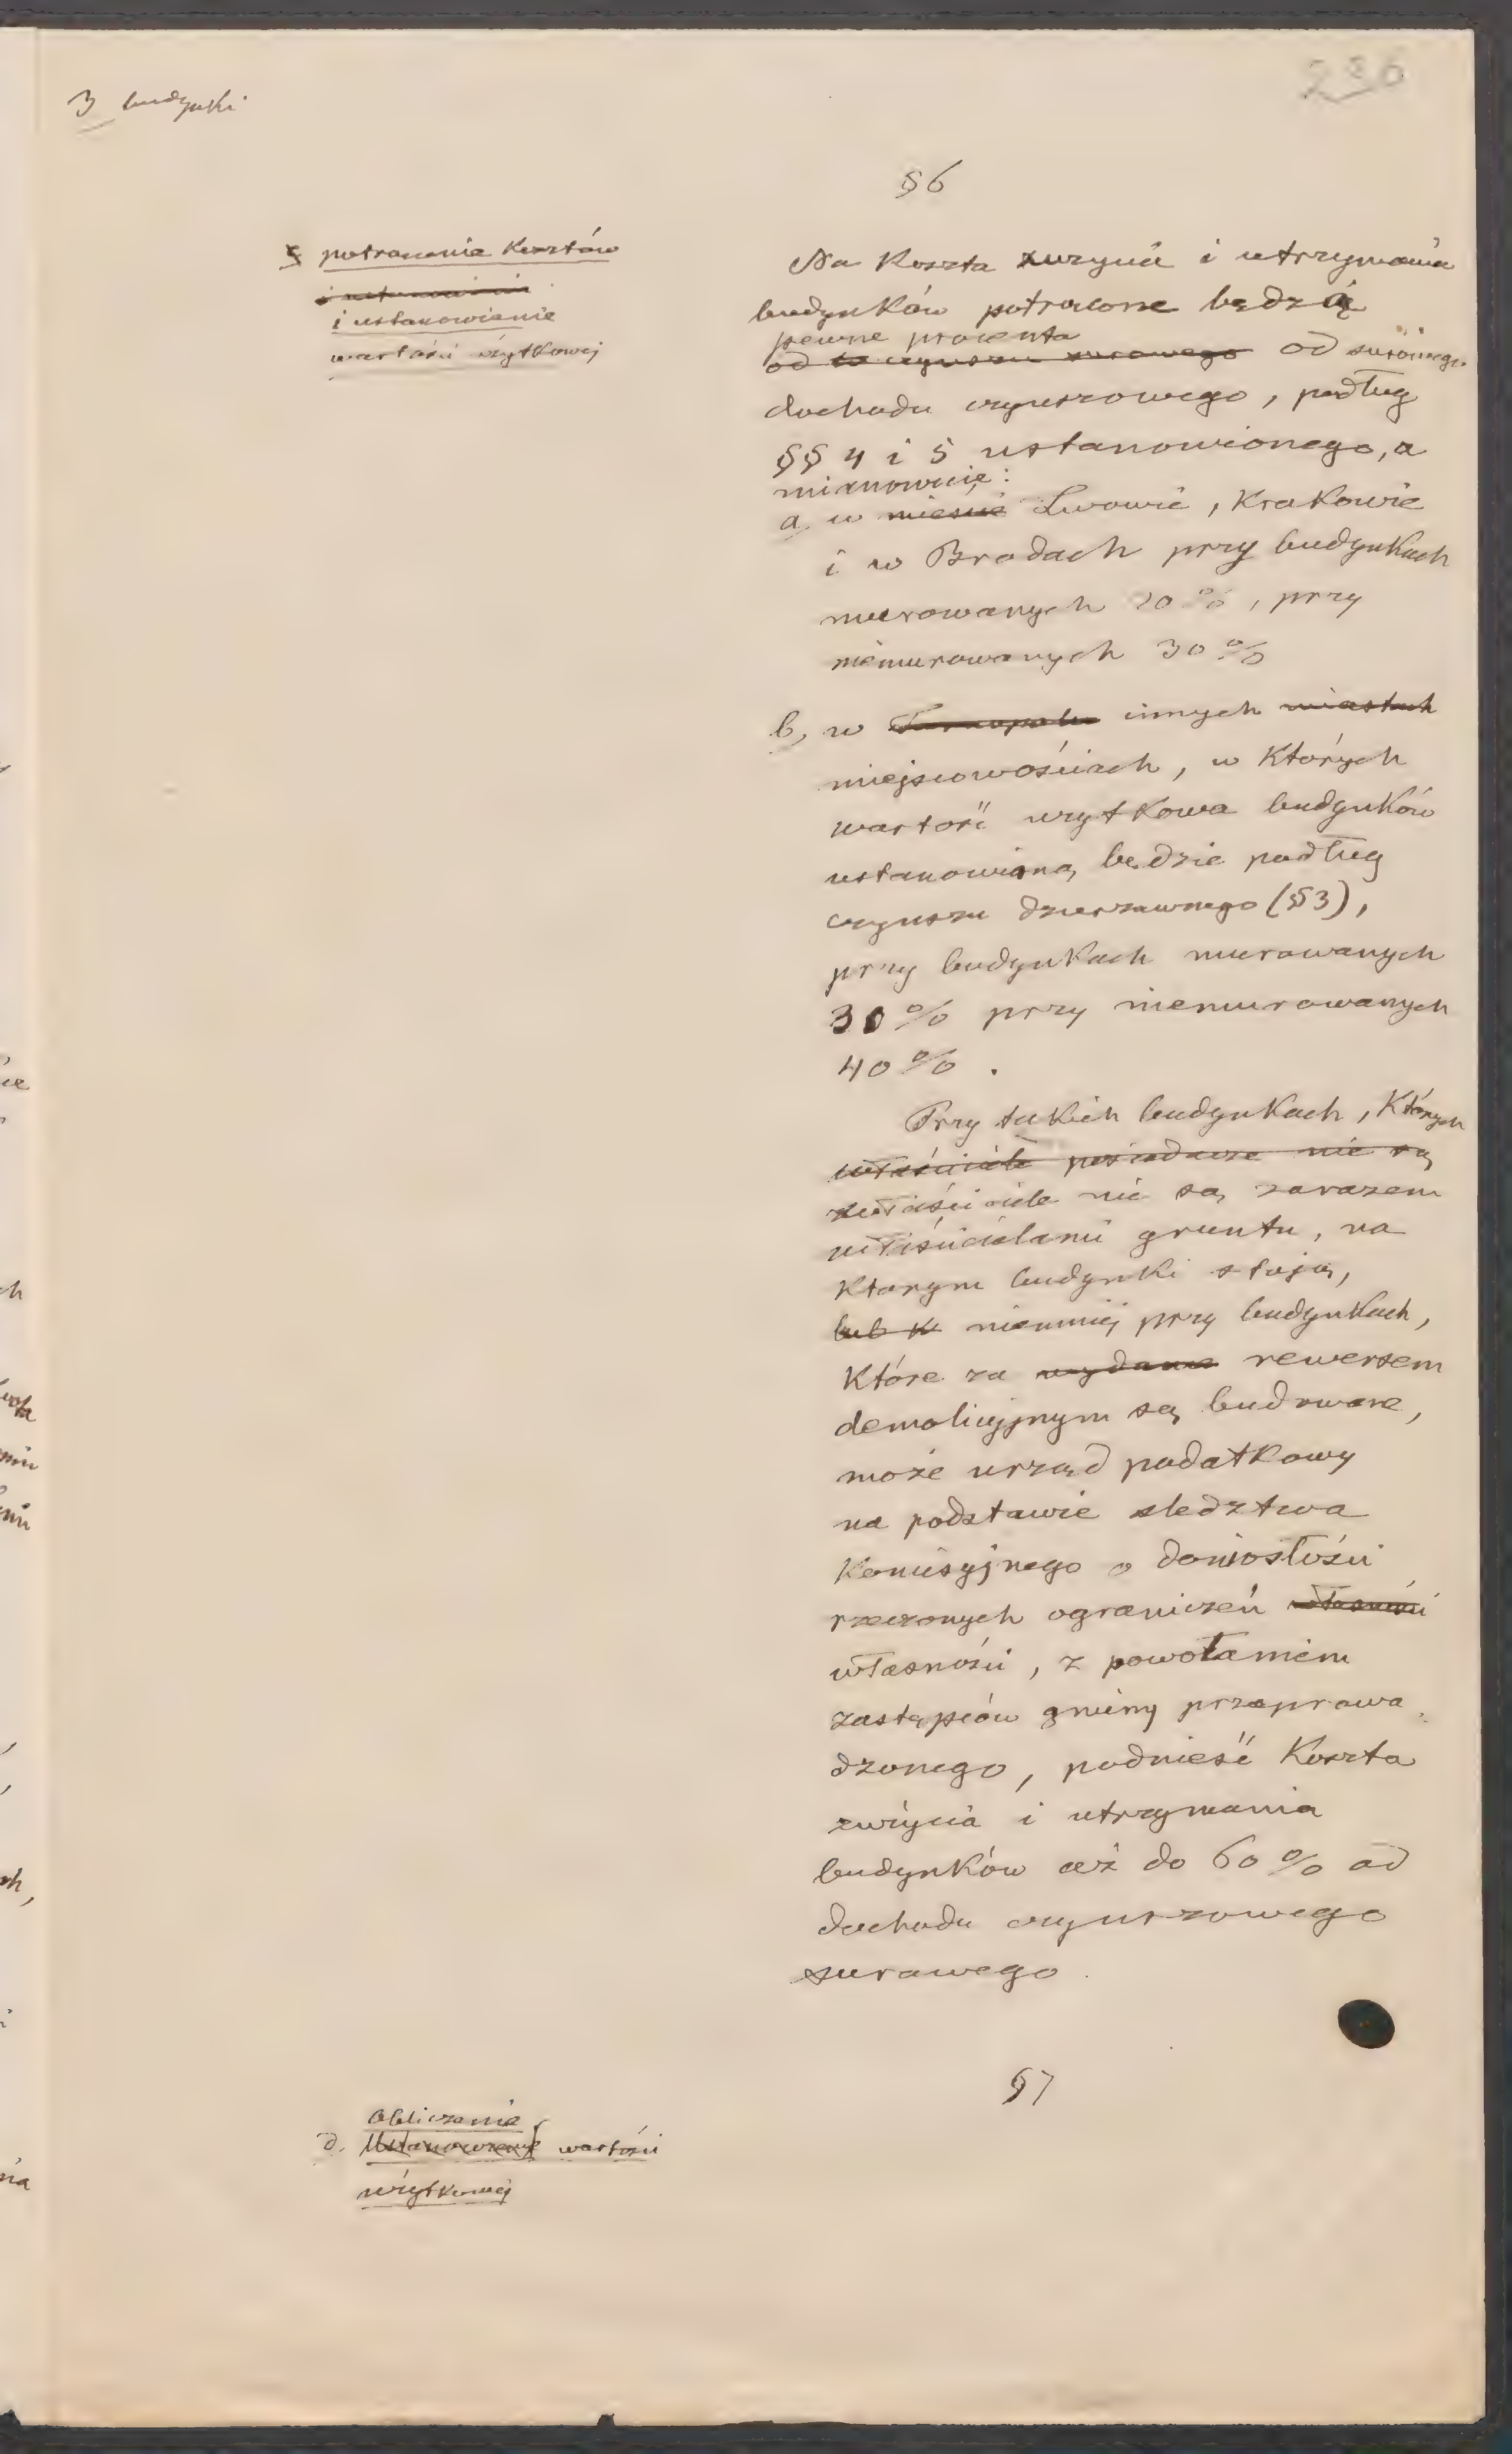 3 budynki
236
§ 6
potrącenie Kosztów
i ustanowienie
i ustanowienie
wartości użytkowej
Na Koszta zużycia i utrzymania
budynków potrącone będzie
pewne procenta
od to czynszu surowego od surowego
dochodu czynszowego, podług
§§ 4 i 5 ustanowionego, a
mianowicie:
a, w mieście Lwowie, Krakowie
i w Brodach przy budynkach
murowanych 20 %, przy
niemurowanych 30 %
b, w Tarnopolu innych miastach
miejscowościach, w Których
wartość użytkowa budynków
ustanowioną będzie podług
czynszu dzierżawnego (§ 3),
przy budynkach murowanych
30 % przy niemurowanych
40 % .
Przy takich budynkach, Których
właściciele posiadacze nie są
właściciele nie są zarazem
właścicielami gruntu, na
Którym budynki stoją,
lub K niemniej przy budynkach,
Które za wydane rewersem
demolicyjnym są budowane,
może urząd podatkowy
na podstawie sledztwa
Komisyjnego o doniosłości
rzeczonych ograniczeń własności
własności, z powołaniem
zastępców gminy przeprowa
dzonego, podnieść Koszta
zużycia i utrzymania
budynków aż do 60 % od
dochodu czynszowego
surowego.
§ 7
Obliczenie
d. Ustanowienie wartości
użytkowej